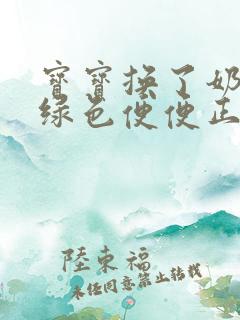 寶寶換了奶
綠色便便正
陸東福
未经同意禁止转载